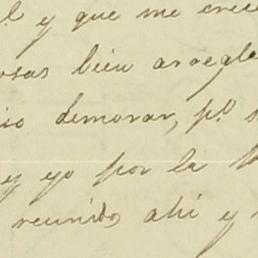 y que me
osas bien arregla
demorar, p.º s
y yo por la
reunido, ahi y